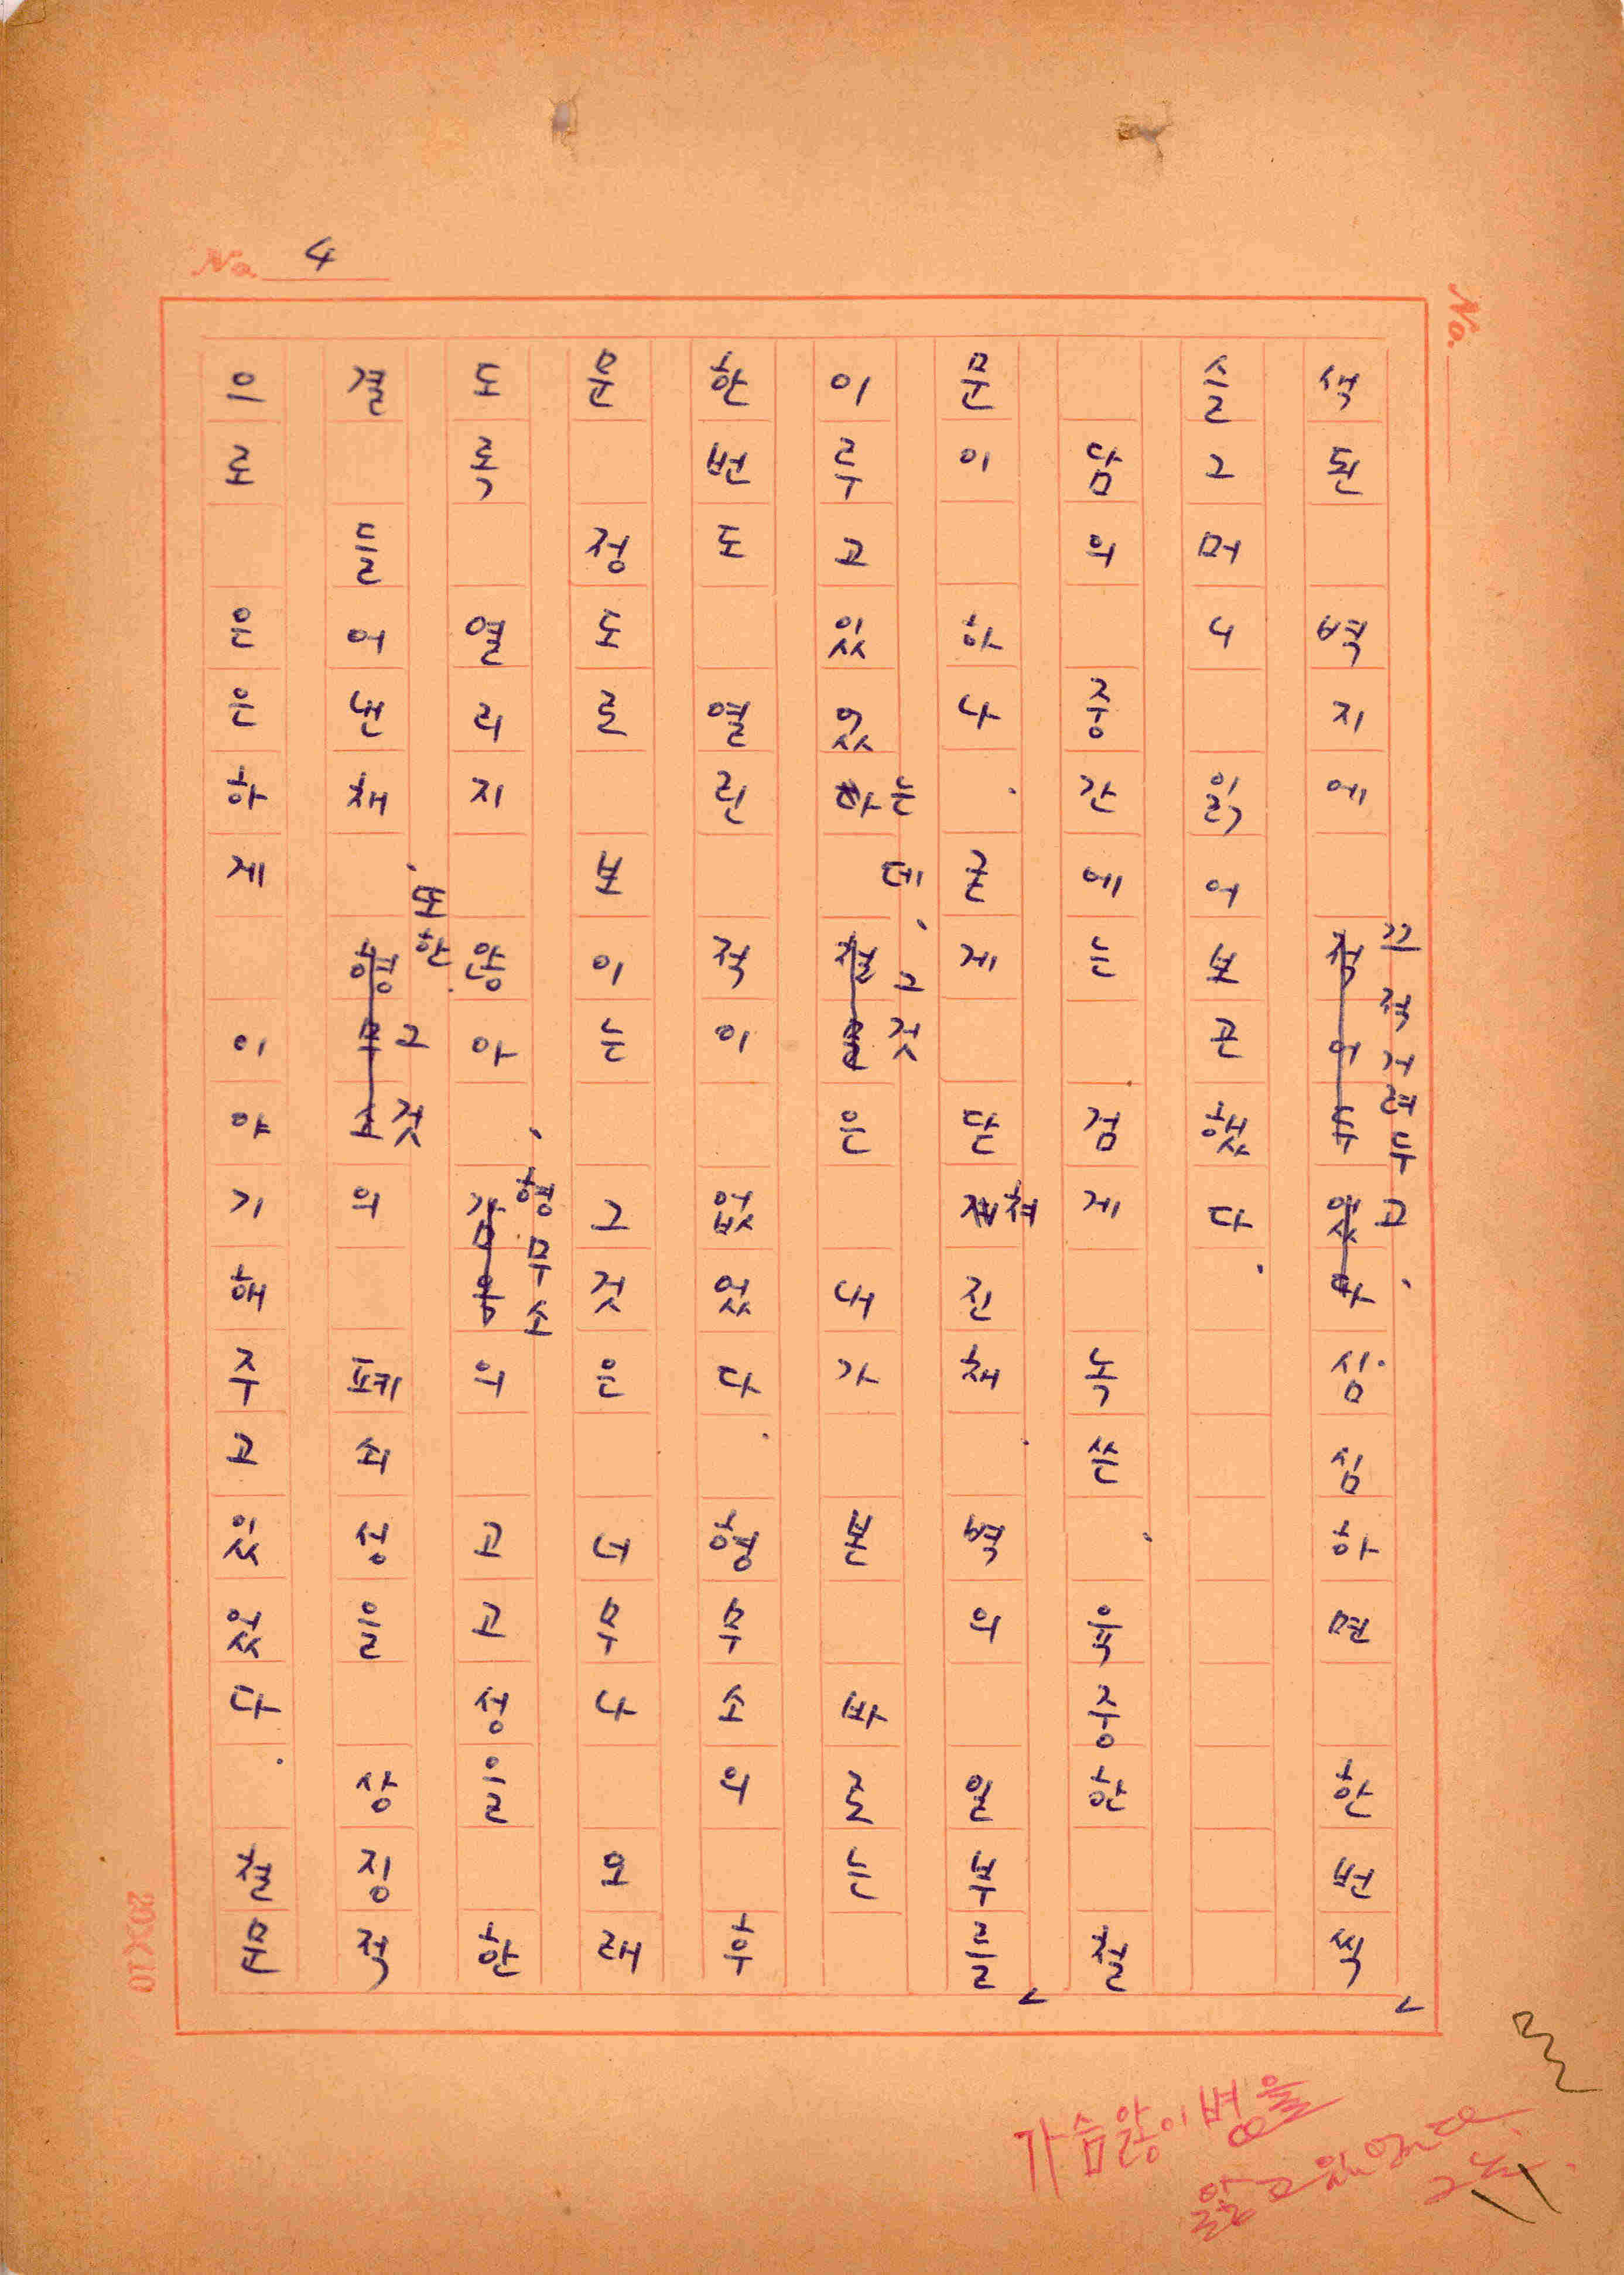 No. 4
No.
색된 벽지에 끄적거려두고. 심심하면 한번씩
슬그머니 읽어보곤했다.
담의 중간에는 검게 녹쓴, 육중한 철
문이 하나. 굳게 닫혀진채, 벽의 일부를
이루고있었는데, 그것은 내가 본 바로는
한번도 열린 적이 없었다. 형무소의 후
문 정도로 보이는 그것은 너무나 오래
도록 열리지 않아, 형무소의 고고성을 한
결 들어낸채, 또한 그것의 폐쇠성을 상징적
으로 은은하게 이야기해주고있었다. 철문
20×10
가슴앓이병을
앓고있었다